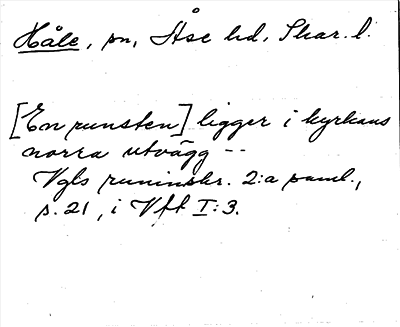 Håle, sn, Åse hd, Skar. l.
[En runsten] ligger i kyrkans
norra utvägg --
Vgls runinskr. 2:a saml.,
s. 21, i Vft I:3.